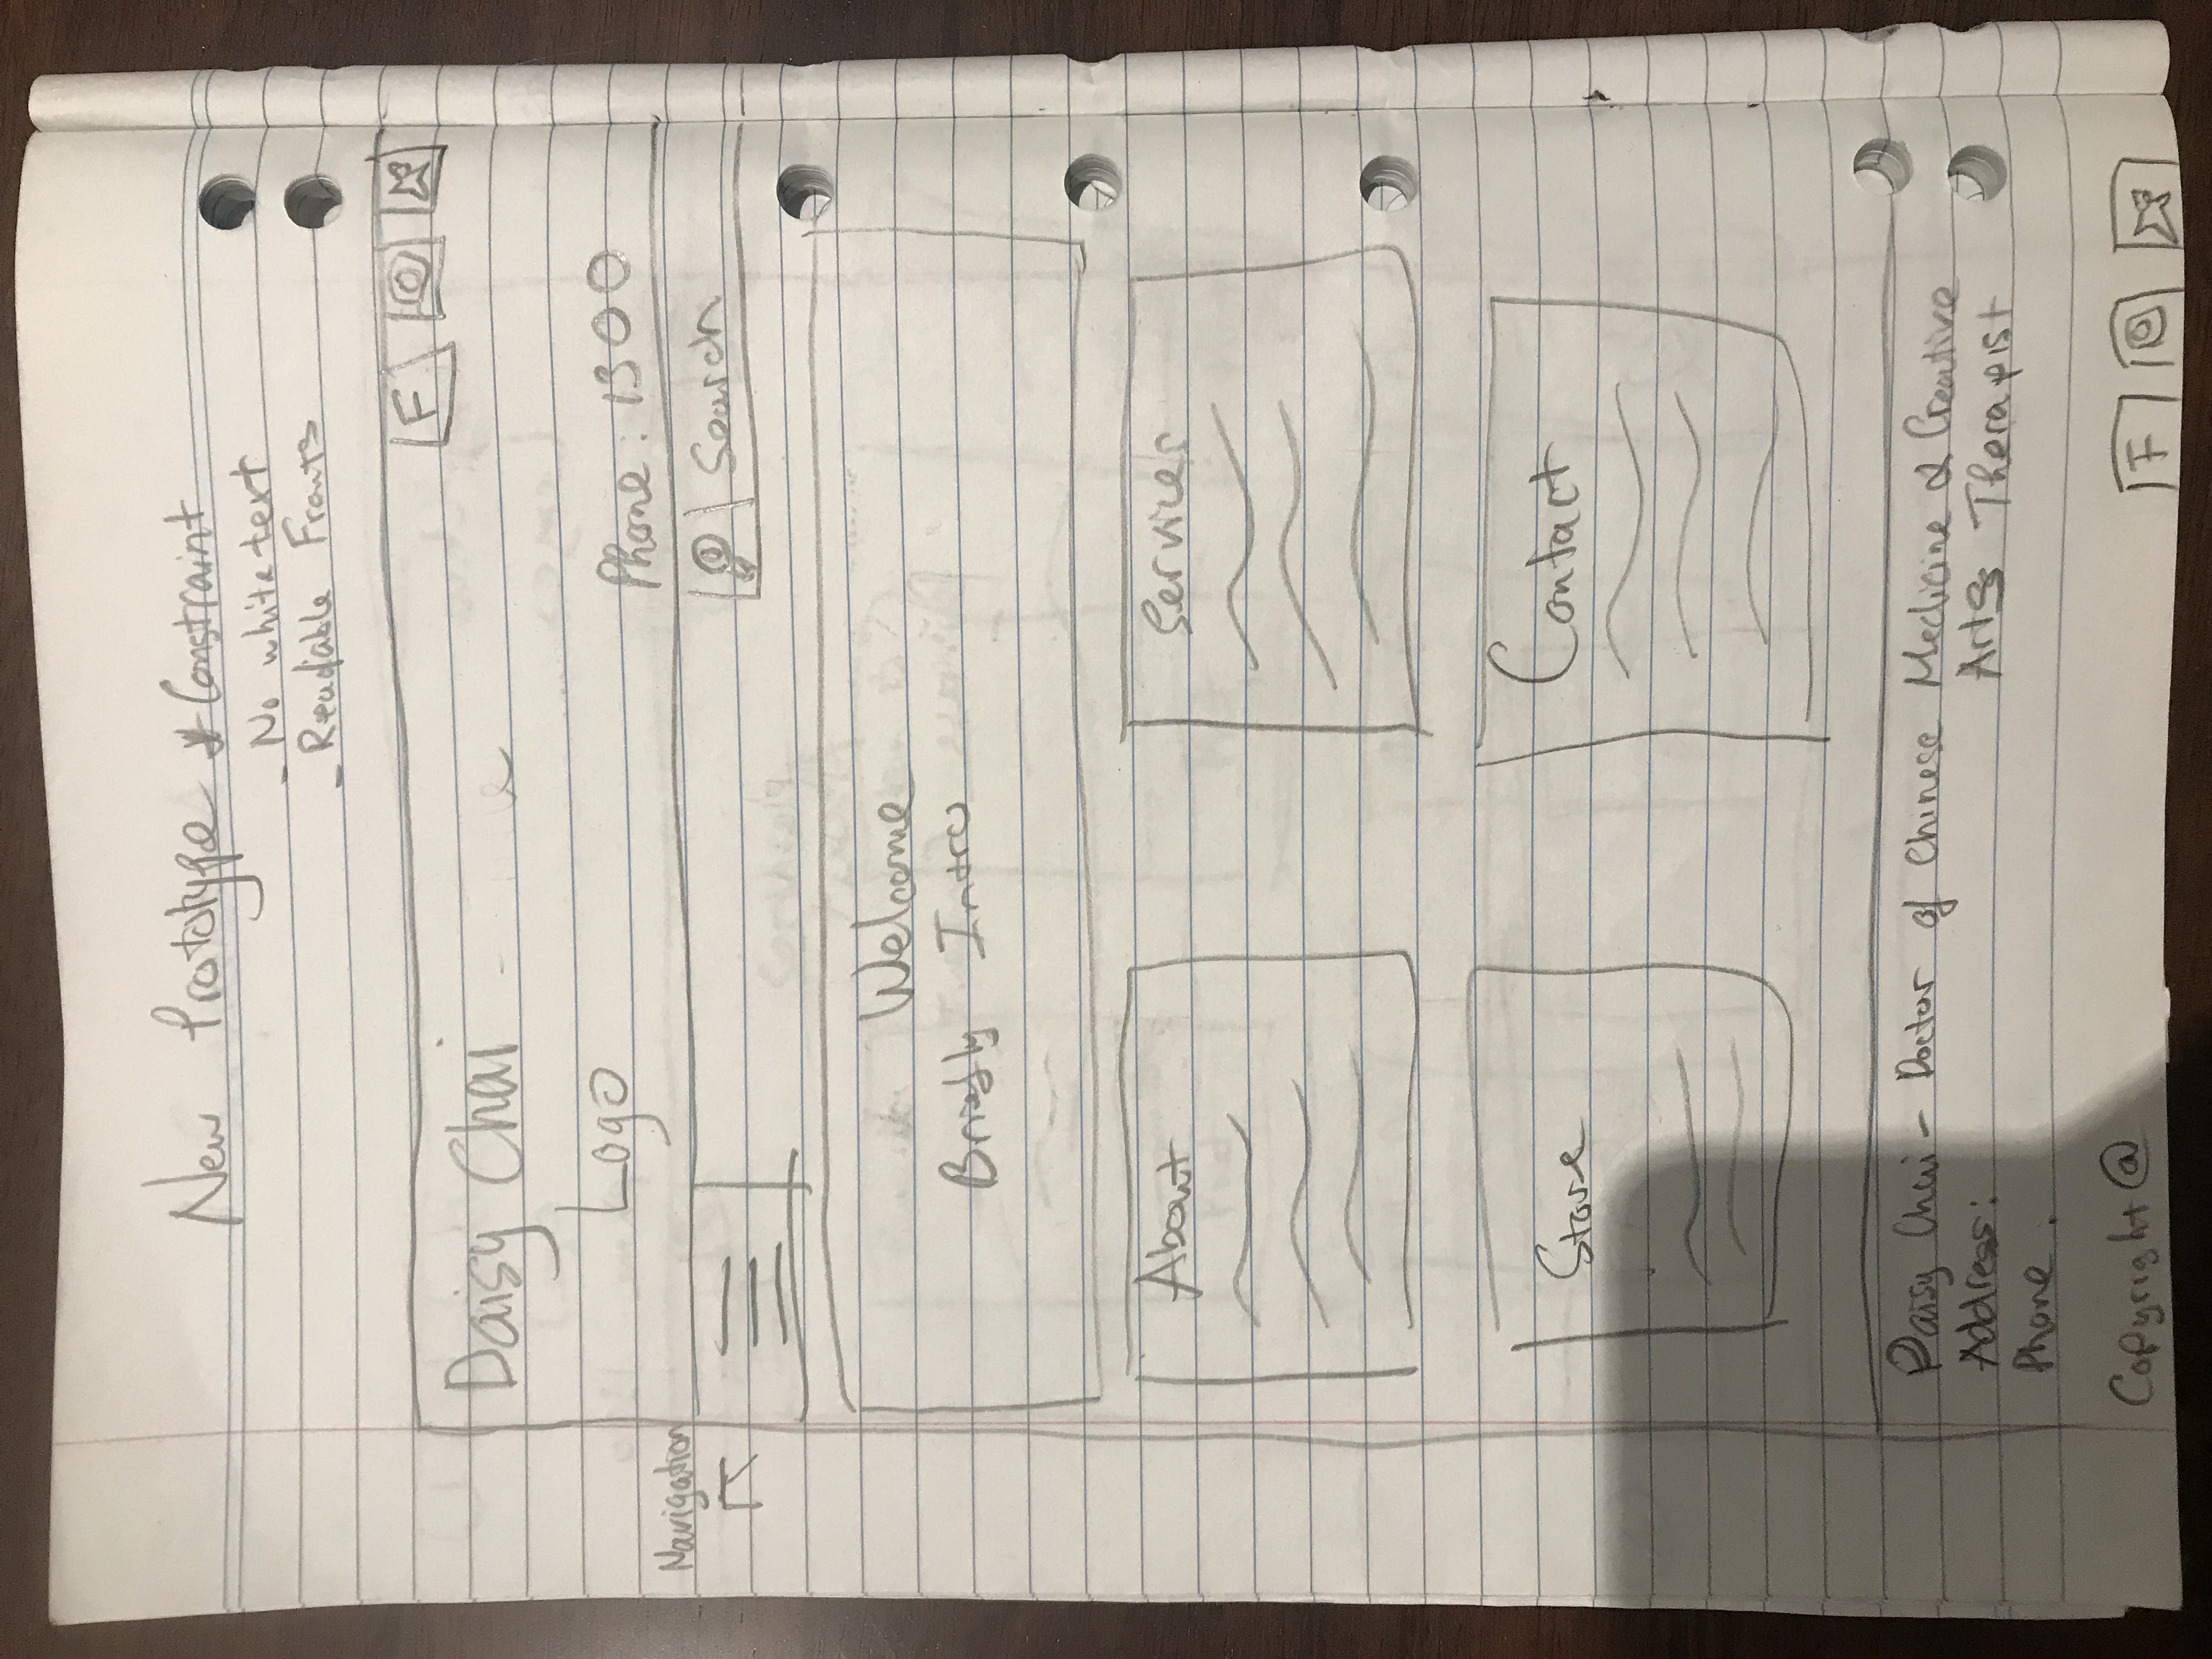 New Prototype * Constraint
- No white text
- Readable Fronts
F
Daisy Chai
Logo
Phone: 1300
Navigation
Search
Welcome
Briefly Intro
About
Services
Store
Contact
Daisy Chai - Doctor of Chinese Medicine & Creative
Address: Arts Therapist
Phone :
Copyright @
F